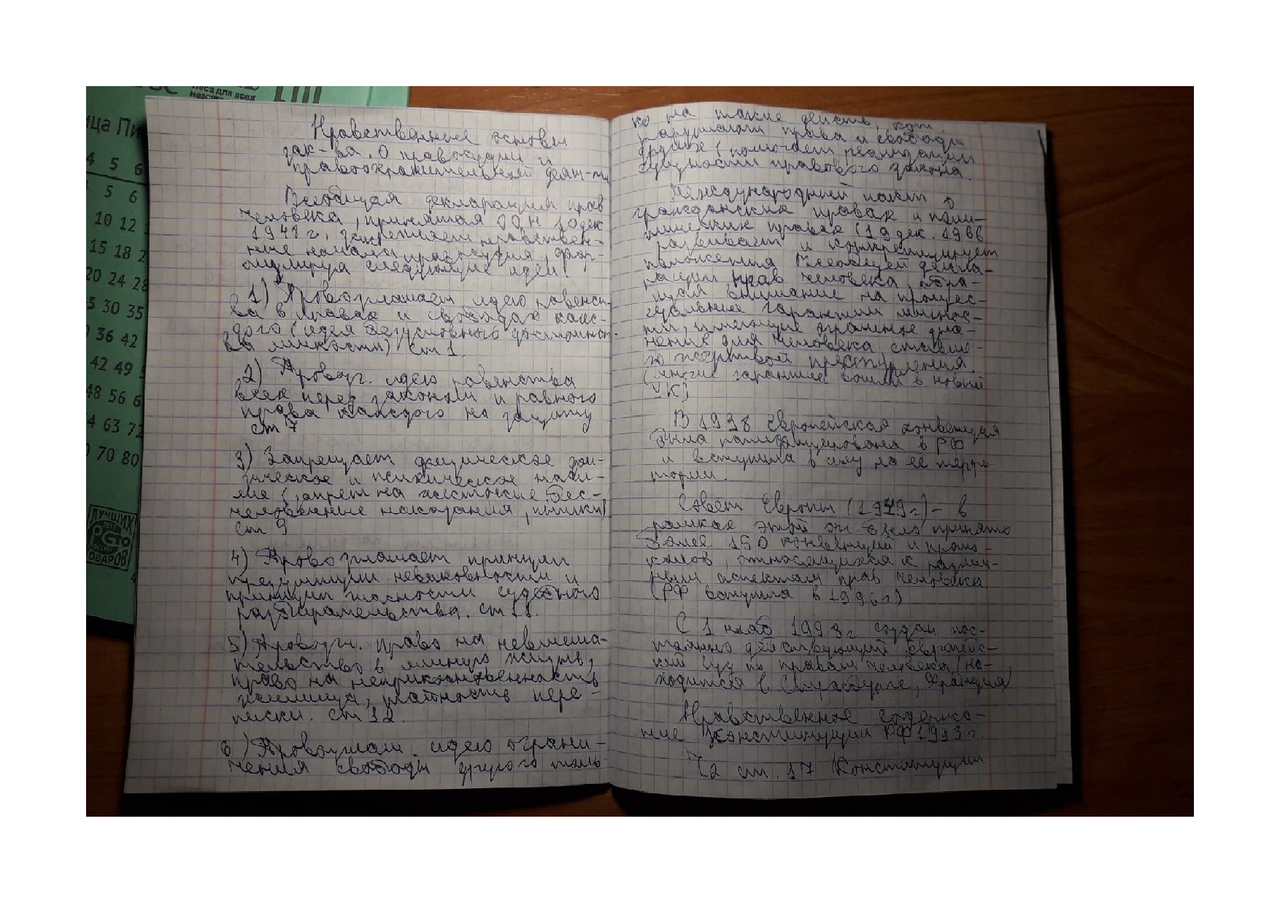 Нравственные основы
зак-ва. О правосудии и
правоохранительной деят-ти
Всеобщая декларация прав
человека, принятая ООН 10 дек
1948 г, закрепляет нравствен-
ные начала правосудия, фор-
мулируя следующие идеи:
1) Провозглашает идею равенст-
ва в правах и свободах каж-
дого (идея безусловного достоинс-
ва личности) ст 1.
2) Провозг. идею равенства
всех перед законом и равного
права каждого на защиту
ст 7
3) Запрещает физическое
и психическое наси-
лие (запрет на жестокие бес-
человечные наказания, пытки)
ст 9
4) Провозглашает принцип
презумпции невиновности и
принцип гласности судебного
разбирательства. ст 11.
5) Провозгл. право на невмеша-
тельство в личную жизнь,
право на неприкосновенность
жилища, переписки. ст 12
6) Провозглаш. идею ограни-
чения свободы другого толь
ко на такие действ, кот.
нарушают права и свободы
других, помогает реализации
сущности правового закона.
Международный пакт о
гражданских правах и поли-
тических правах (19 дек. 1966
развивает и конкретизирует
положения Всеобщей декла-
рации прав человека обра-
щая внимание на процес-
суальные гарантии личнос-
ти, имеющие огромное зна-
чение для человека, ставше-
го жертвой преступления.
(многие гарантии вошли в новый
УК)
В 1998 Европейская конвенция
была ратифицирована в РФ
и вступила в силу на её терри
тории.
Совет Европы (1949г) - в
рамках этой было принято
более 150 конвенций и прото-
колов, относящихся к различ-
ным аспектам прав человека
(РФ вступила в 1996г)
С 1 нояб 1998г создан пос-
тоянно действующий европейс-
кий суд по правам человека, (на-
ходится в Страсбурге, Франция)
Нравственное содержа-
ние Конституции РФ 1993г
Ч2 ст. 17 Конституции
ица Пи
4 5 6
5 6
10 12
15 18 2
20 24 28
5 30 35
36 42
42 49 5
48 56 6
4 63 72
70 80
ЛУЧШИХ
PG